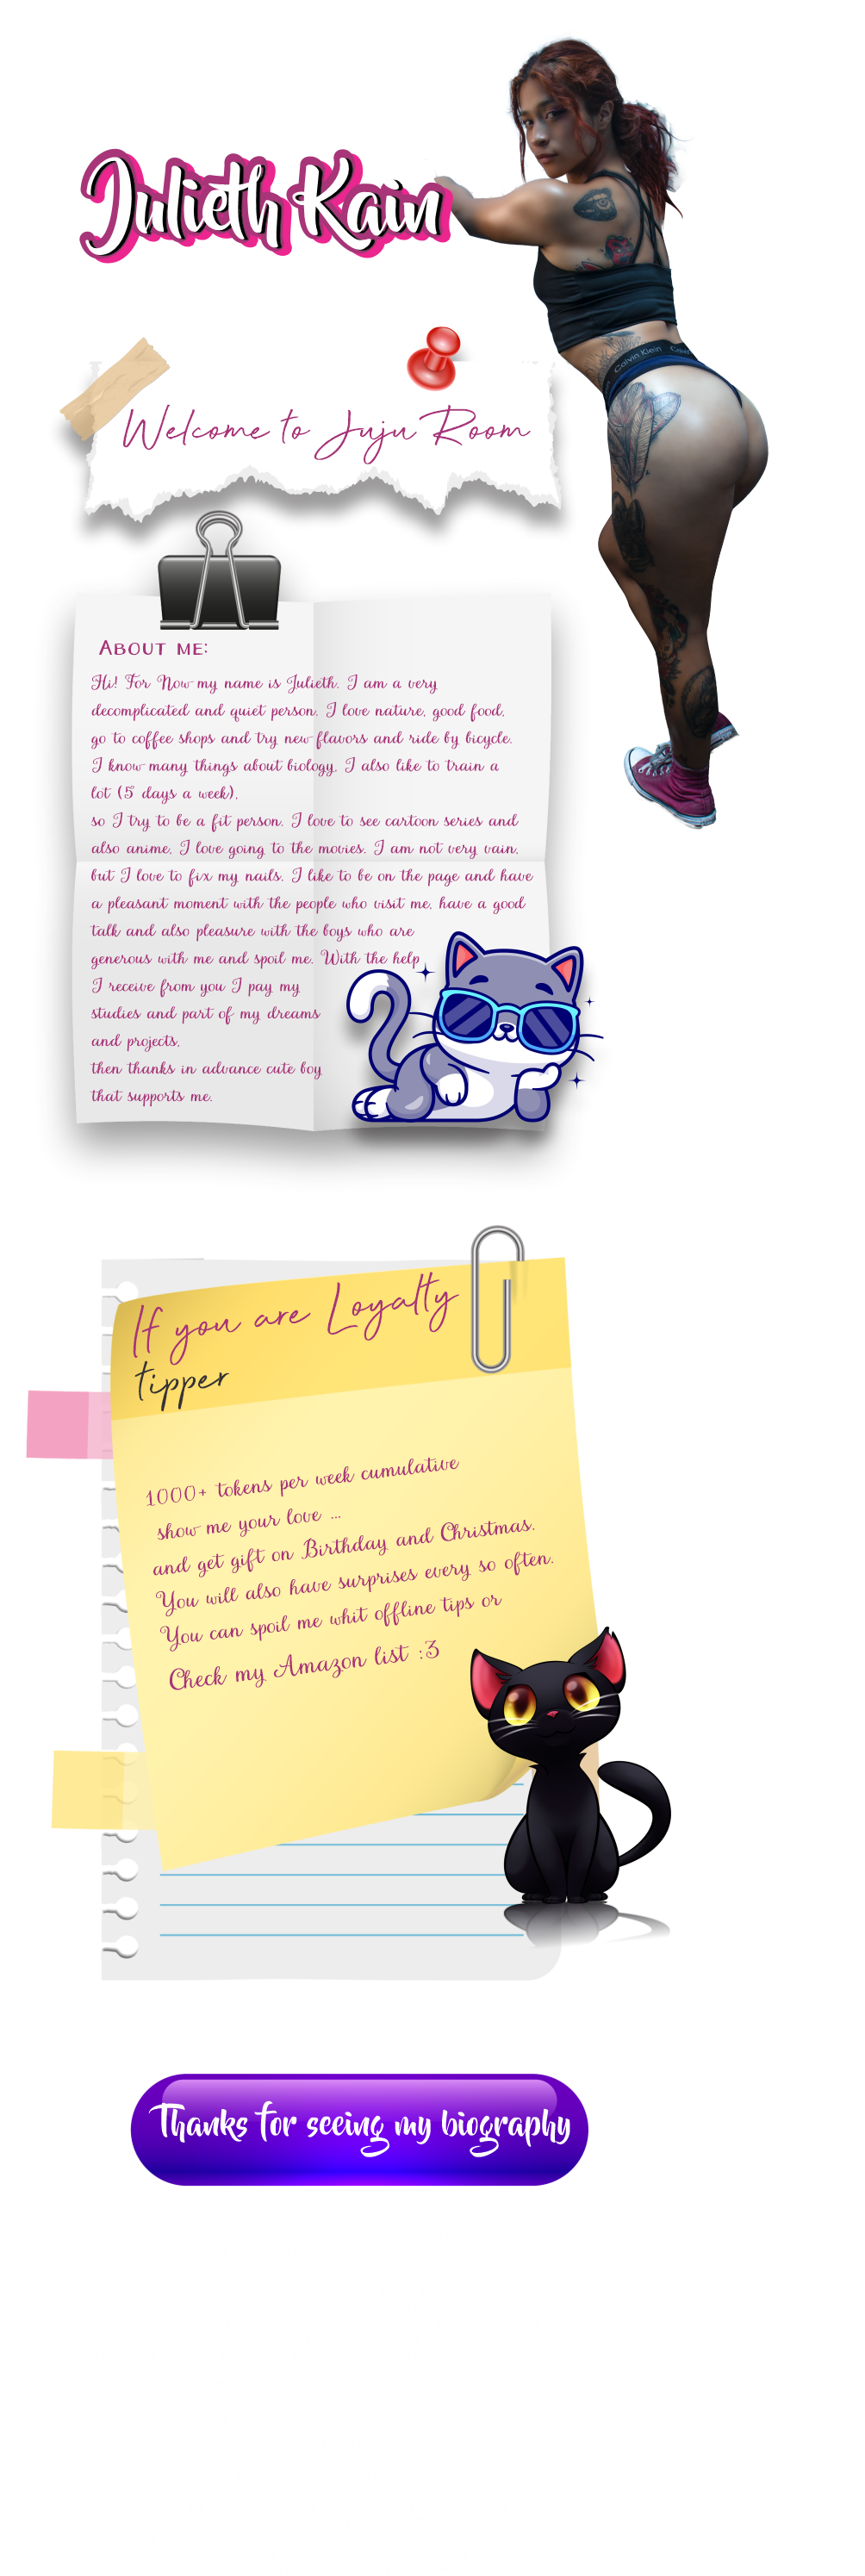 Julieth Kain
Calvin Klein
Welcome to Juju Room
About me:
Hi! For Now my name is Julieth. I am a very
decomplicated and quiet person. I love nature, good food,
go to coffee shops and try new flavors and ride by bicycle.
I know many things about biology, I also like to train a
lot (5 days a week),
so I try to be a fit person. I love to see cartoon series and
also anime, I love going to the movies. I am not very vain,
but I love to fix my nails. I like to be on the page and have
a pleasant moment with the people who visit me, have a good
talk and also pleasure with the boys who are
generous with me and spoil me. With the help
I receive from you I pay my
studies and part of my dreams
and projects,
then thanks in advance cute boy
that supports me.
If you are Loyalty
tipper
1000+ tokens per week cumulative
show me your love ...
and get gift on Birthday and Christmas.
You will also have surprises every so often.
You can spoil me whit offline tips or
Check my Amazon list :3
Thanks for seeing my biography